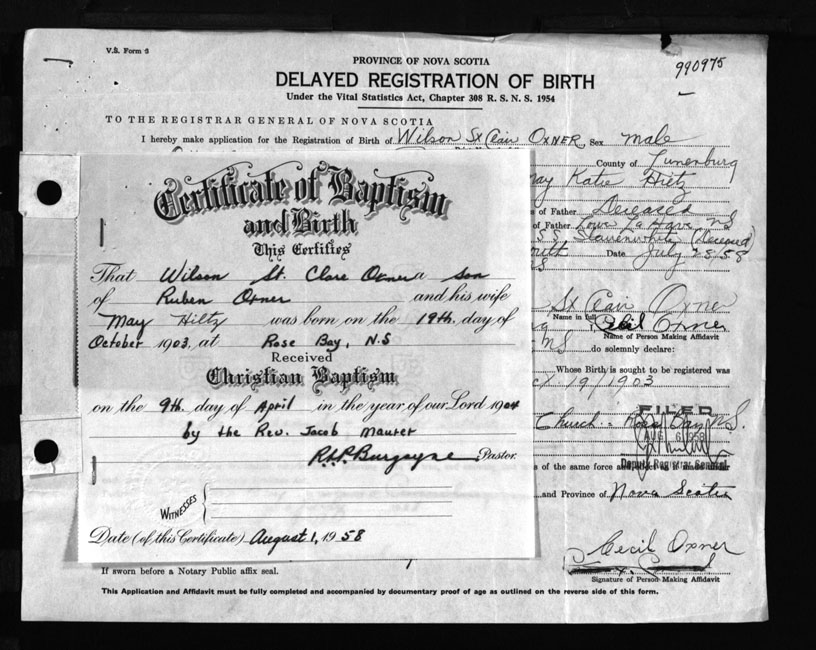 V.S. Form 6
990975
PROVINCE OF NOVA SCOTIA
DELAYED REGISTRATION OF BIRTH
Under the Vital Statistics Act, Chapter 308 R. S. N. S. 1954
TO THE REGISTRAR GENERAL OF NOVA SCOTIA
I hereby make application for the Registration of Birth of Wilson St Clair OXNER, Sex male
County of Lunenburg
May Katie Hiltz
of Father Deceased
of Father Lower La Have NS
(Deceased)
Date July 28 58
St Clair Oxner
Name in full
Cecil Oxner
Name of Person Making Affidavit
NS do solemnly declare:
Whose Birth is sought to be registered was
19/1903
Church - Rose Bay N.S.
FILED
AUG 6 1958
Deputy Registrar General
s of the same force
and Province of Nova Scotia
Cecil Oxner
Signature of Person Making Affidavit
Certificate of Baptism
and Birth
This Certifies
That Wilson St. Clare Oxner a son
of Ruben Oxner and his wife
May Hiltz was born on the 19th day of
October 1903 at Rose Bay, N.S
Received
Christian Baptism
on the 9th day of April in the year of our Lord 1904
by the Rev. Jacob Maurer
R.H.P. Burgoyne Pastor.
WITNESSES
Date (of this Certificate) August 1, 1958
If sworn before a Notary Public affix seal.
This Application and Affidavit must be fully completed and accompanied by documentary proof of age as outlined on the reverse side of this form.